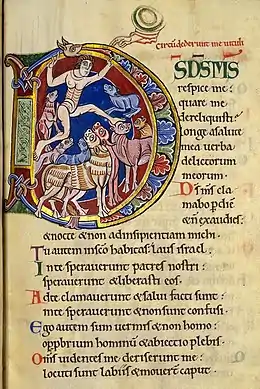 Circūdederunt me uituli
DS DS MS
respice me:
quare me
dereliquisti:
longe a salute
mea uerba
delictorum
meorum.
Ds ms cla
mabo p diē
& ñ exaudies:
& nocte & non ad insipientiam michi.
Tu autem in sco habitas: laus israel.
In te sperauerunt patres nostri:
sperauerunt & liberasti eos.
Ad te clamauerunt & salui facti sunt:
in te sperauerunt & non sunt confusi.
Ego autem sum uermis & non homo:
opprobrium hominū & abiectio plebis.
Oms uidentes me deriserunt me:
locuti sunt labiis & mouerunt caput.